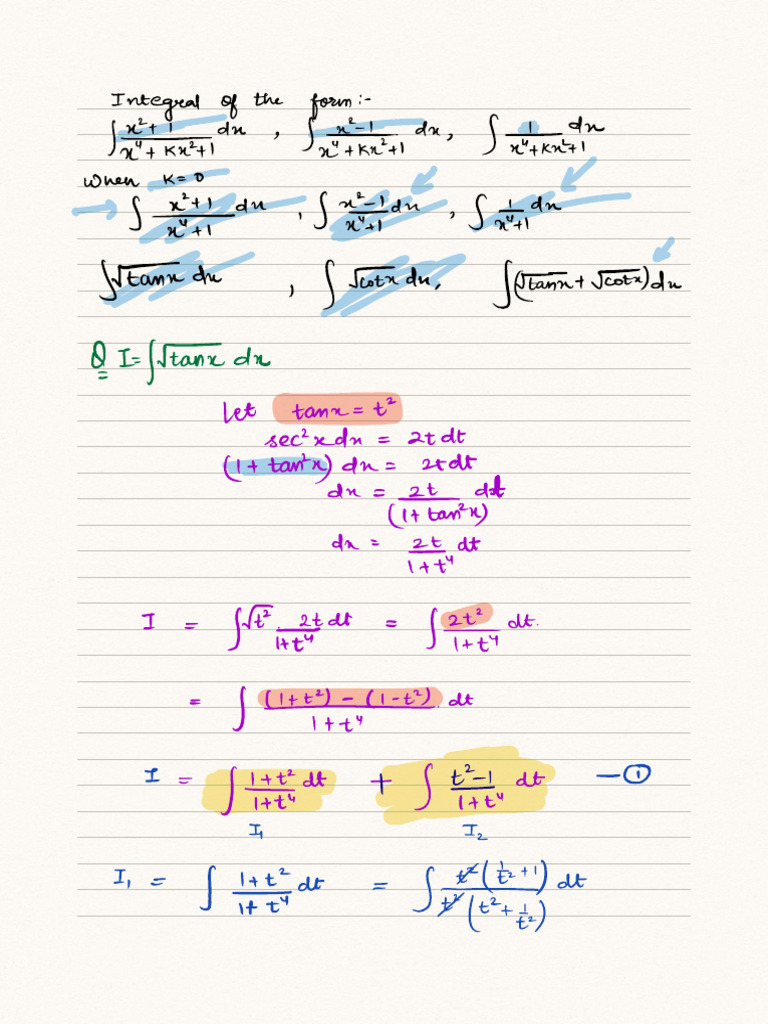 Integral of the form:-
∫ (x²+1)/(x⁴+Kx²+1) dx , ∫ (x²-1)/(x⁴+Kx²+1) dx, ∫ 1/(x⁴+Kx²+1) dx
when K=0
→ ∫ (x²+1)/(x⁴+1) dx , ∫ (x²-1)/(x⁴+1) dx , ∫ 1/(x⁴+1) dx
∫√tanx dx , ∫ √cotx dx, ∫(√tanx + √cotx) dx
Q I=∫√tanx dx
Let tanx = t²
sec²x dx = 2t dt
(1 + tan²x) dx = 2t dt
dx = 2t/(1+tan²x) dt
dx = 2t/(1+t⁴) dt
I = ∫√t² . 2t dt/(1+t⁴) = ∫ 2t²/(1+t⁴) dt.
= ∫ ((1+t²) - (1-t²))/(1+t⁴) . dt
I = ∫ (1+t²)/(1+t⁴) dt + ∫ (t²-1)/(1+t⁴) dt —①
I₁ I₂
I₁ = ∫ (1+t²)/(1+t⁴) dt = ∫ t²(1/t²+1)/t²(t²+1/t²) dt